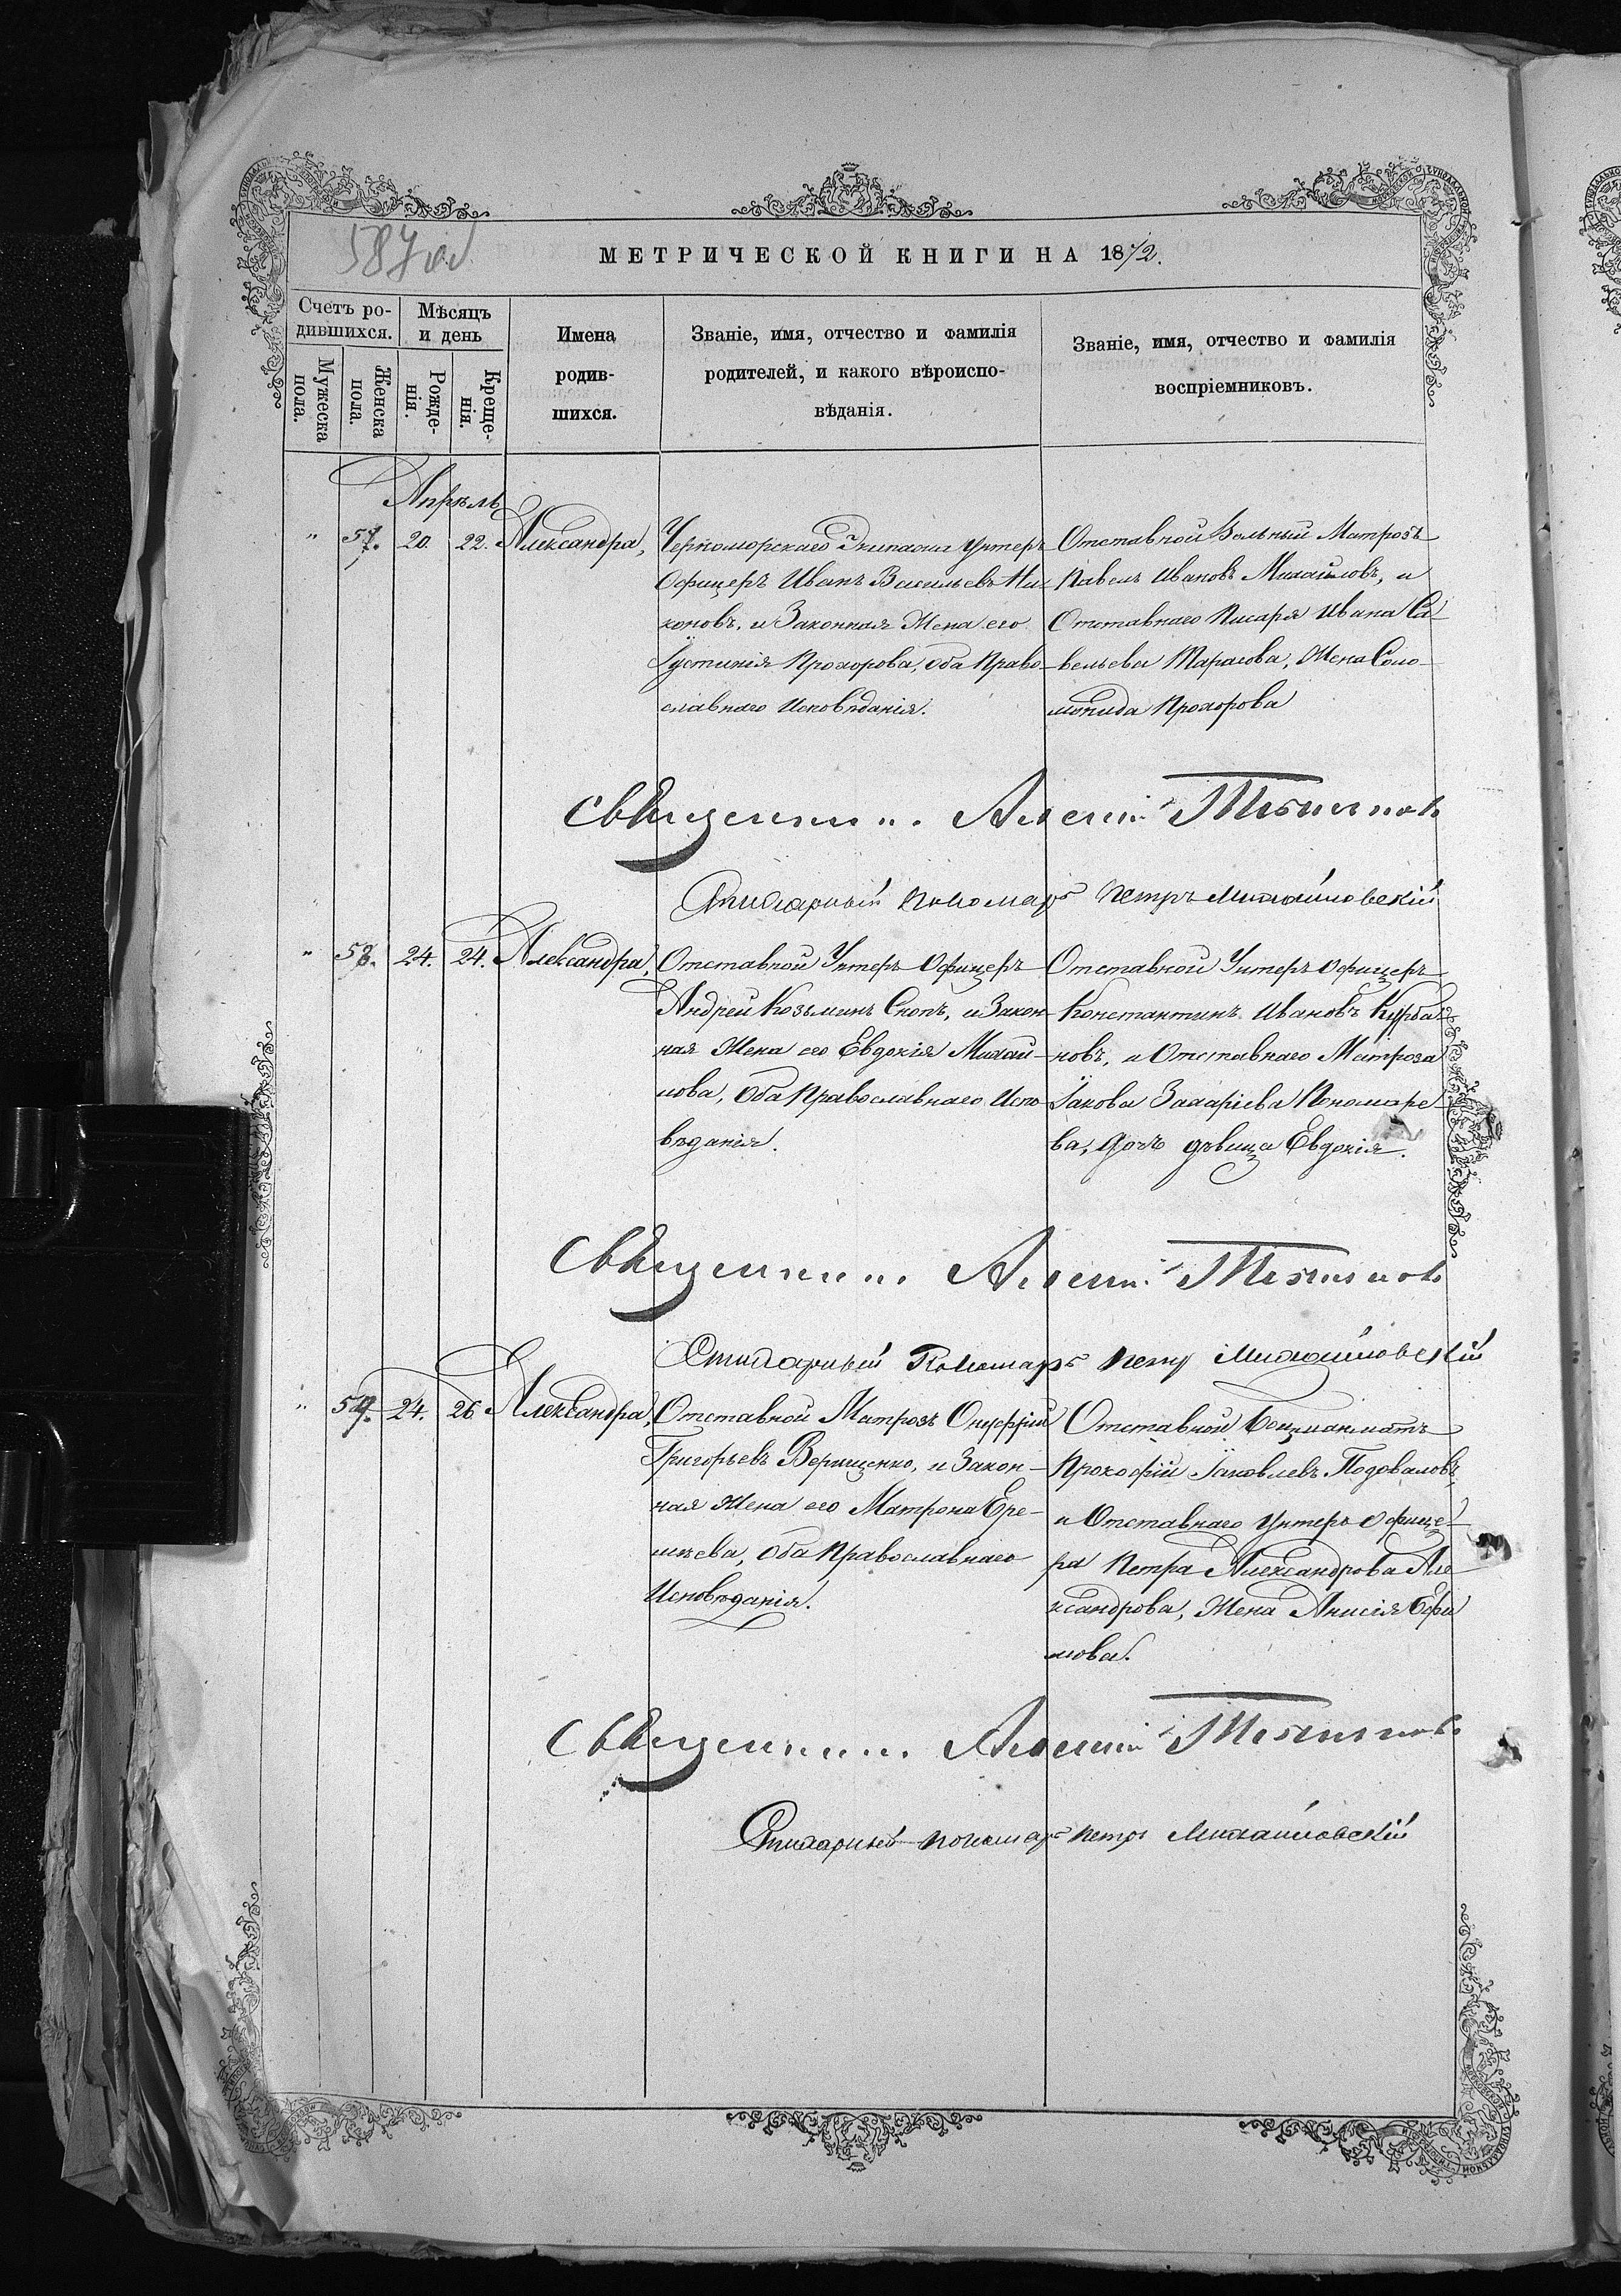 587 об
МЕТРИЧЕСКОЙ КНИГИ НА 1872.
Счетъ ро-
дившихся.
Мѣсяцъ
и день
Мужеска
пола.
Женска
пола.
Рожде-
нія.
Креще-
нія.
Имена
родив-
шихся.
Званіе, имя, отчество и фамилія
родителей, и какого вѣроиспо-
вѣданія.
Званіе, имя, отчество и фамилія
воспріемниковъ.
Апрѣль
" 57. 20. 22. Александра,
Черноморскаго Экипажа Унтеръ
Офицеръ Иванъ Васильевъ Ни-
коновъ, и Законная Жена его
Іустинія Прохорова, Оба Право-
славнаго Исповѣданія.
Отставной Вольный Матрозъ
Павелъ Ивановъ Михайловъ, и
Отставнаго Писаря Ивана Са-
вельева Тарасова, Жена Соло-
монида Прохорова
Священникъ Алексій
Стихарный Пономарь Петръ Михайловскій
" 58. 24. 24. Александра,
Отставной Унтеръ Офицеръ
Андрей Козьминъ Снопъ, и Закон-
ная Жена его Евдокія Михай-
лова, Оба Православнаго Испо-
вѣданія.
Отставной Унтеръ Офицеръ
Константинъ Ивановъ Курба-
новъ, и Отставнаго Матроза
Іакова Захаріева Пономаре-
ва, Дочь дѣвица Евдокія.
Священникъ Алексій
Стихарный Пономарь Петръ Михайловскій
" 59. 24. 26. Александра,
Отставной Матрозъ Онуфрій
Григорьевъ Верещенко, и Закон-
ная Жена его Матрона Ере-
мѣева, Оба Православнаго
Исповѣданія.
Отставной Боцманматъ
Прокофій Іаковлевъ Подоваловъ,
и Отставнаго Унтеръ Офице-
ра Петра Александрова Але-
ксандрова, Жена Анисія Ефи-
мова.
Священникъ Алексій
Стихарный пономарь Петръ Михайловскій